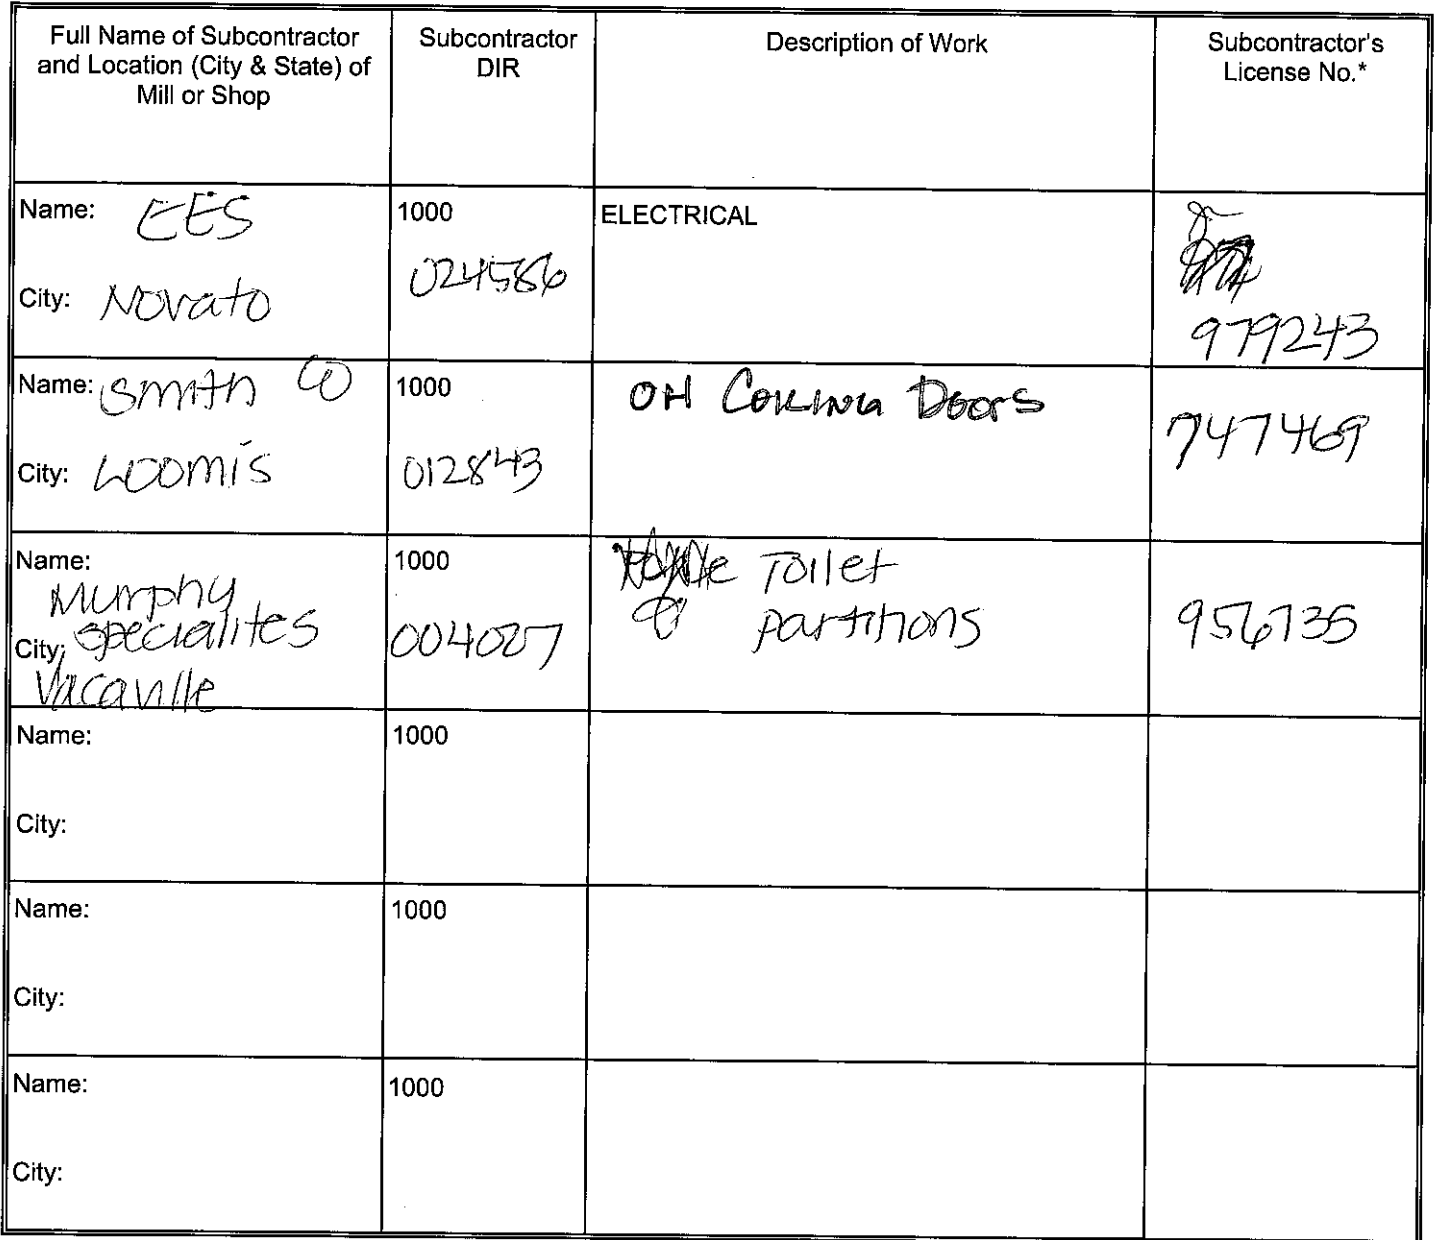 Full Name of Subcontractor
and Location (City & State) of
Mill or Shop
Subcontractor
DIR
Description of Work
Subcontractor's
License No.*
Name: EES
City: Novato
1000
024586
ELECTRICAL
979243
Name: Smith Co
City: Loomis
1000
012843
OH Coiling Doors
747469
Name:
Murphy
City: specialites
Vacaville
1000
004027
Toilet
partitions
956735
Name:
City:
1000
Name:
City:
1000
Name:
City:
1000